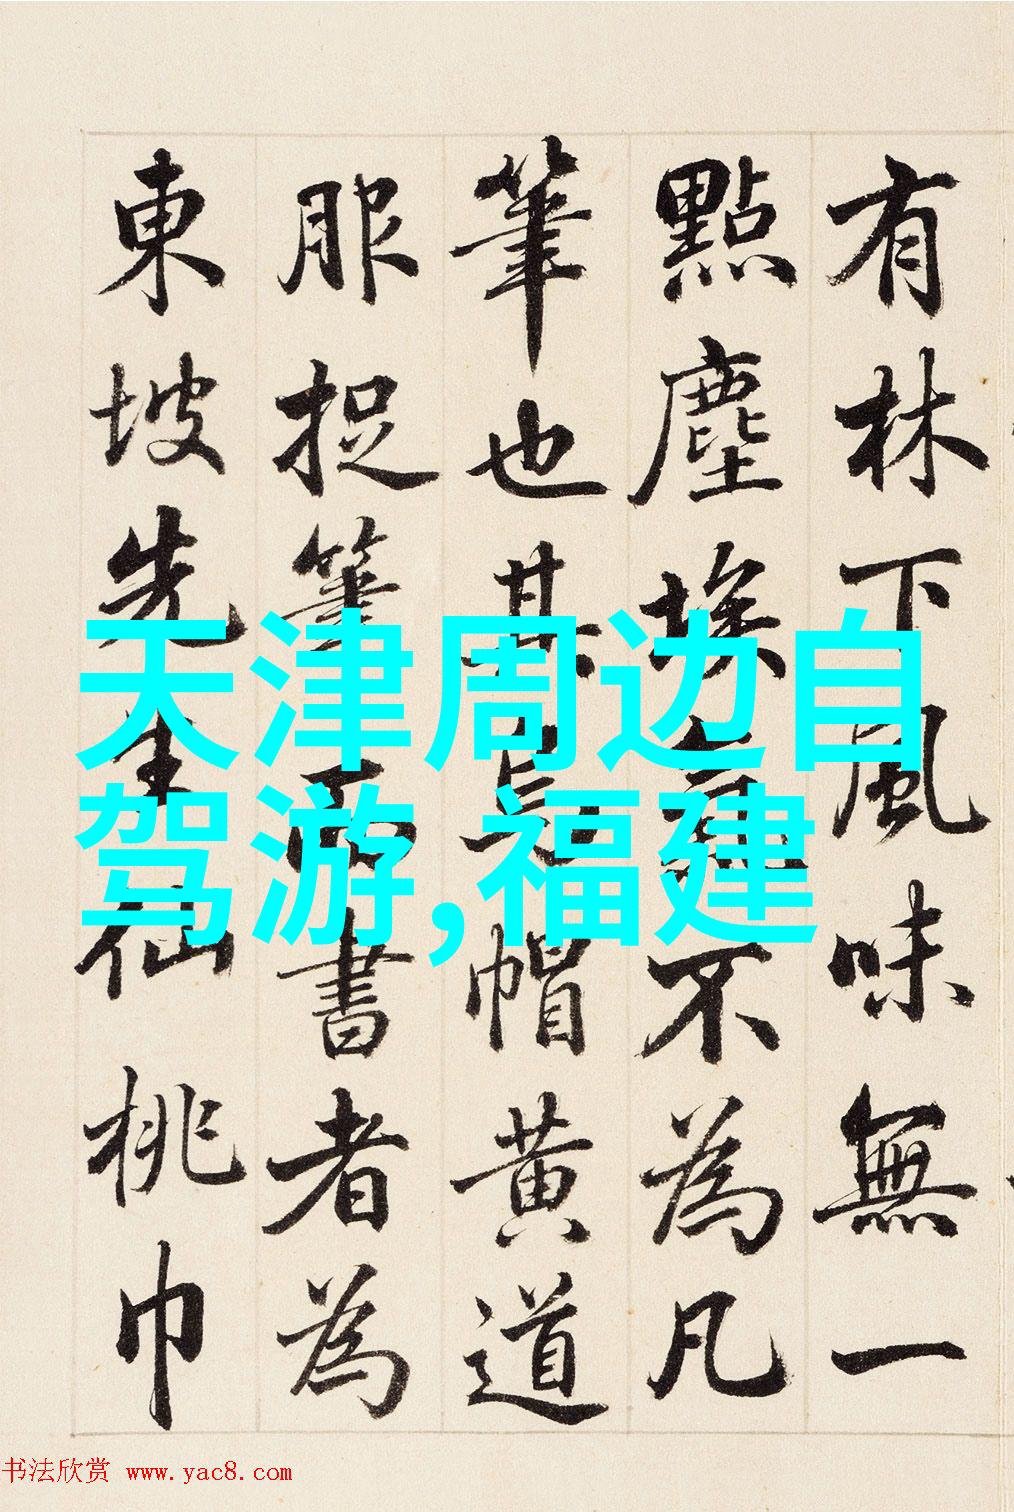 有林下風味無一
點塵埃不為凡
筆也其長帽黃道
服捉筆而書者為
東坡先生仙桃巾
天津周边自
驾游,福建
书法欣赏 www.yac8.com